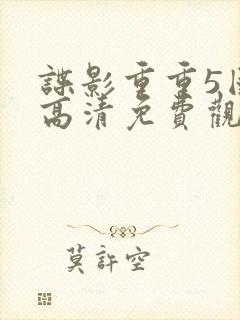 諜影重重5
高清免費觀
莫許空